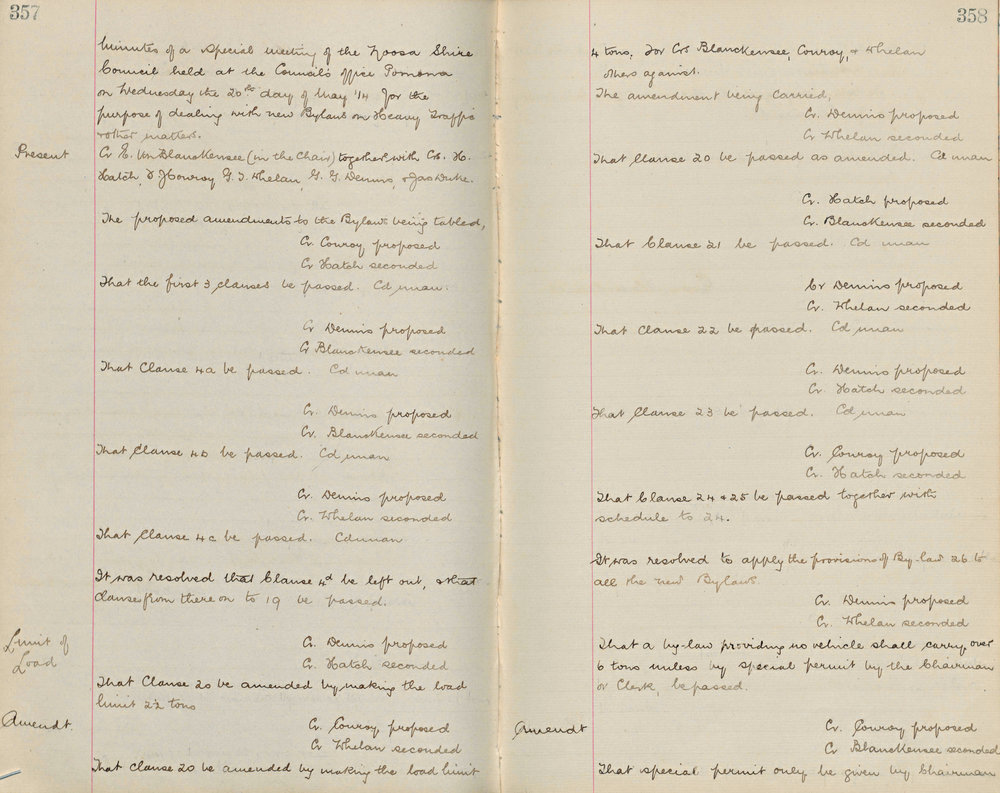 357
Minutes of a special meeting of the Noosa Shire
Council held at the Council's office Pomona
on Wednesday the 20th day of May '14 for the
purpose of dealing with new Bylaws on Heavy Traffic
& other matters.
Present
Cr E. Blanckensee (in the Chair) together with Crs. H.
Hatch, Conroy G. J. Whelan, G. G. Dennis, & Jas Duke.
The proposed amendments to the Bylaws being tabled,
Cr. Conroy proposed
Cr Hatch seconded
That the first 3 clauses be passed. Cd unan.
Cr Dennis proposed
Cr Blanckensee seconded
That Clause 4a be passed. Cd unan
Cr. Dennis proposed
Cr. Blanckensee seconded
That Clause 4b be passed. Cd unan
Cr. Dennis proposed
Cr. Whelan seconded
That Clause 4c be passed. Cd unan
It was resolved that Clause 4d be left out, & that
clause from there on to 19 be passed.
Limit of
Load
Cr. Dennis proposed
Cr. Hatch seconded
That Clause 20 be amended by making the load
limit 2½ tons
Amendt.
Cr. Conroy proposed
Cr Whelan seconded
That clause 20 be amended by making the load limit
358
4 tons. For Crs Blanckensee, Conroy, & Whelan
others against.
The amendment being carried,
Cr. Dennis proposed
Cr Whelan seconded
That Clause 20 be passed as amended. Cd unan
Cr. Hatch proposed
Cr. Blanckensee seconded
That Clause 21 be passed. Cd unan
Cr Dennis proposed
Cr. Whelan seconded
That Clause 22 be passed. Cd unan
Cr. Dennis proposed
Cr. Hatch seconded
That Clause 23 be passed. Cd unan
Cr. Conroy proposed
Cr. Hatch seconded
That Clause 24 & 25 be passed together with
schedule to 24.
It was resolved to apply the provisions of By-law 26 to
all the new Bylaws.
Cr. Dennis proposed
Cr. Whelan seconded
That a by-law providing no vehicle shall carry over
6 tons unless by special permit by the Chairman
or Clerk, be passed.
Amendt
Cr. Conroy proposed
Cr Blanckensee seconded
That special permit only be given by Chairman